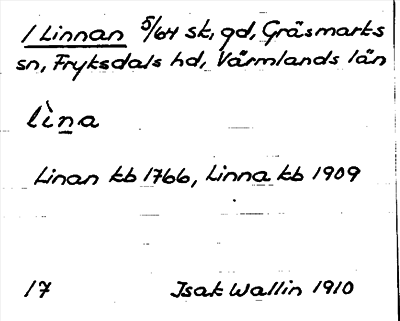 1 Linnan 5/64 sk, gd, Gräsmarks
sn, Fryksdals hd, Värmlands län
lìna
Linan kb 1766, Linna kb 1909
17 Isak Wallin 1910